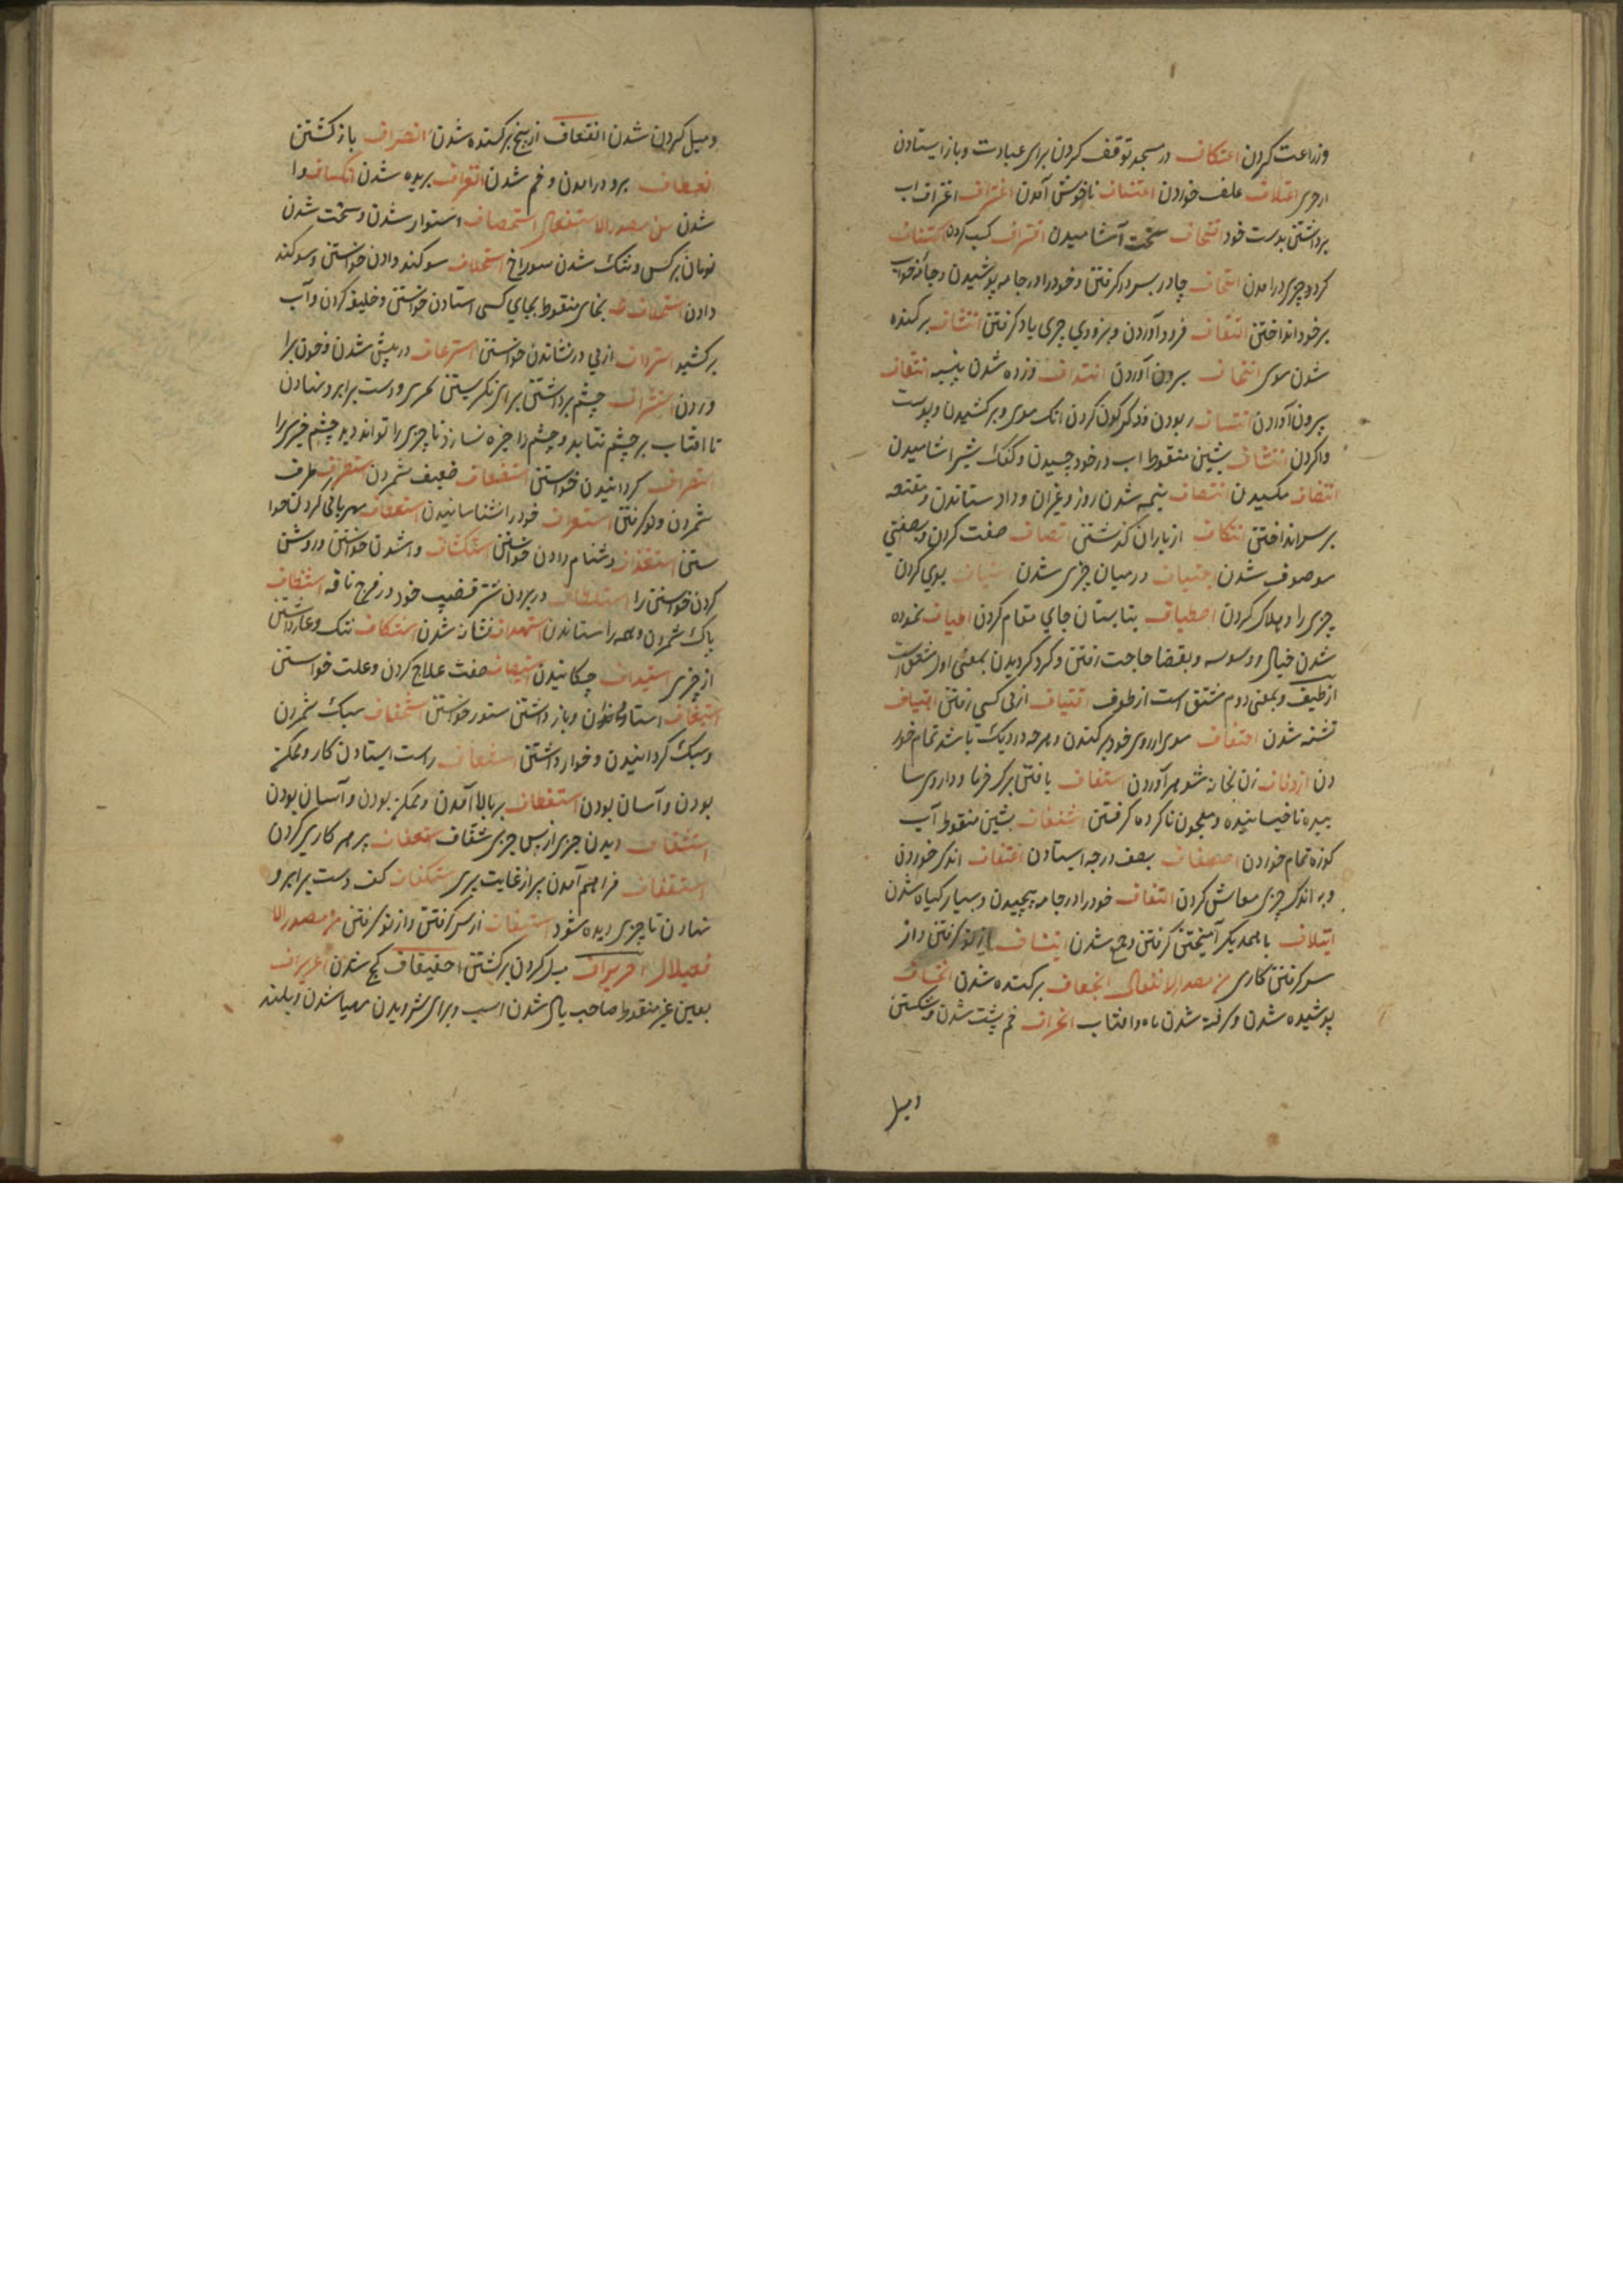 وزراعت کردن اعتکاف در مسجد توقف کردن برای عبادت وباز ایستادن
از چیزی اعتلاف علف خوردن اعتناف ناخوش آمدن اغتراف اغتراف آب
برداشتن بدست خود اقتحاف سخت آشامیدن اقتراف کسب کردن اکتناف
کرد چیزی درآمدن التحاف چادر بسر درگرفتن وخود را در جامه پوشیدن وجامه خواب
برخود انداختن التقاف فرود آوردن وبزودی چیزی یاد گرفتن انتتاف برکنده
شدن موی انتجاف بیرون آوردن انتداف زده شدن پنبه انتقاف
بیرون آوردن انتساف ربودن ودگرگون کردن رنک موی وبرکشیدن وپوست
واکردن انتشاف بشین منقوط آب در خود چسیدن وکفک شیر آشامیدن
انتضاف مکیدن انتصاف نیمه شدن روز وغیر آن وداد ستاندن ومقنعه
برسر انداختن انتکاف از باران گذشتن اتصاف صفت کردن وبصفتی
موصوف شدن اجتیاف در میان چیزی شدن استیاف بوی کردن
چیزی را وهلاک کردن اصطیاف بتابستان جای مقام کردن اطیاف نموده
شدن خیال ووسوسه وبقضا حاجت رفتن وگرد گردیدن بمعنی اول مشتق است
از طیف وبمعنی دوم مشتق است از طوف اقتیاف از پی کسی رفتن اهتیاف
تشنه شدن احتفاف موی از روی خود برکندن وهرچه در دیک باشد تمام خور
دن ازدفاف زن بخانه شوهر آوردن استفاف بافتن برک خرما وداروی سا
ییده ناخیسانیده ومعجون ناکرده گرفتن اشتفاف بشین منقوط آب
کوزه تمام خوردن اصطفاف بصف درجه ایستادن اغتفاف اندک خوردن
وبه اندک چیزی معاش کردن التفاف خود را در جامه پیچیدن وبسیار گیاه شدن
ایتلاف با همدیگر آمیختن گرفتن وجمع شدن ایتناف از نو گرفتن واز
سر گرفتن کاری من مصدر الانفعال انجعاف برکنده شدن انخساف
پوشیده شدن وگرفته شدن ماه وآفتاب انحراف خم پشت شدن وشکستن
ومیل
ومیل کردن شدن انقعاف از بیخ برکنده شدن انصراف باز گشتن
انعطاف برو درآمدن وخم شدن انغراف بریده شدن انکشاف وا
شدن من مصدر الاستفعال استحصاف استوار شدن وسخت شدن
زمان برکس وتنک شدن سوراخ استحلاف سوگند دادن خواستن وسوگند
دادن استخلاف بخای منقوط بجای کسی استادن خواستن وخلیفه کردن وآب
برکشید استرداف از پی درنشاندن خواستن استرعاف در پیش شدن وخون برا
وردن استشراف چشم برداشتن برای نگریستن چیزی ودست برابرو نهادن
تا آفتاب بر چشم نتابد وچشم را خیره نسازد تا چیزی را تواند دید چشم چیزی را
استصراف گردانیدن خواستن استضعاف ضعیف شمردن استطراف طرف
شمردن ونو گرفتن استعراف خود را شناسانیدن استعطاف مهربانی کردن خوا
ستن استقذاف دشنام دادن خواستن استکشاف واشدن خواستن وروشن
کردن خواستن را در بردن شتر قضیب خود در فرج ناقه استنظاف
پاک شمردن وهمه را ستاندن استهداف نشانه شدن استنکاف ننک وعار داشتن
از چیزی استیداف چکانیدن استیصاف صفت علاج کردن وعلت خواستن
استیقاف وباز داشتن ستور خواستن استخفاف سبک شمردن
وسبک گردانیدن وخوار داشتن استدفاف راست ایستادن کار وممکن
بودن وآسان بودن استطفاف بربالا آمدن وممکن بودن وآسان بودن
استشفاف دیدن چیزی از پس چیزی شفاف استعفاف پرهیز کاری کردن
استقفاف فراهم آمدن پیر از غایت پیری استکفاف کف دست برابرو
نهادن تا چیزی دیده شود استیناف از سر گرفتن واز نو گرفتن من مصدر الا
فعیلال احریراف میل کردن برگشتن احقیقاف کج شدن اعریراف
بعین غیر منقوط صاحب یال شدن اسب وبرای شر دویدن مهیا شدن وبلند